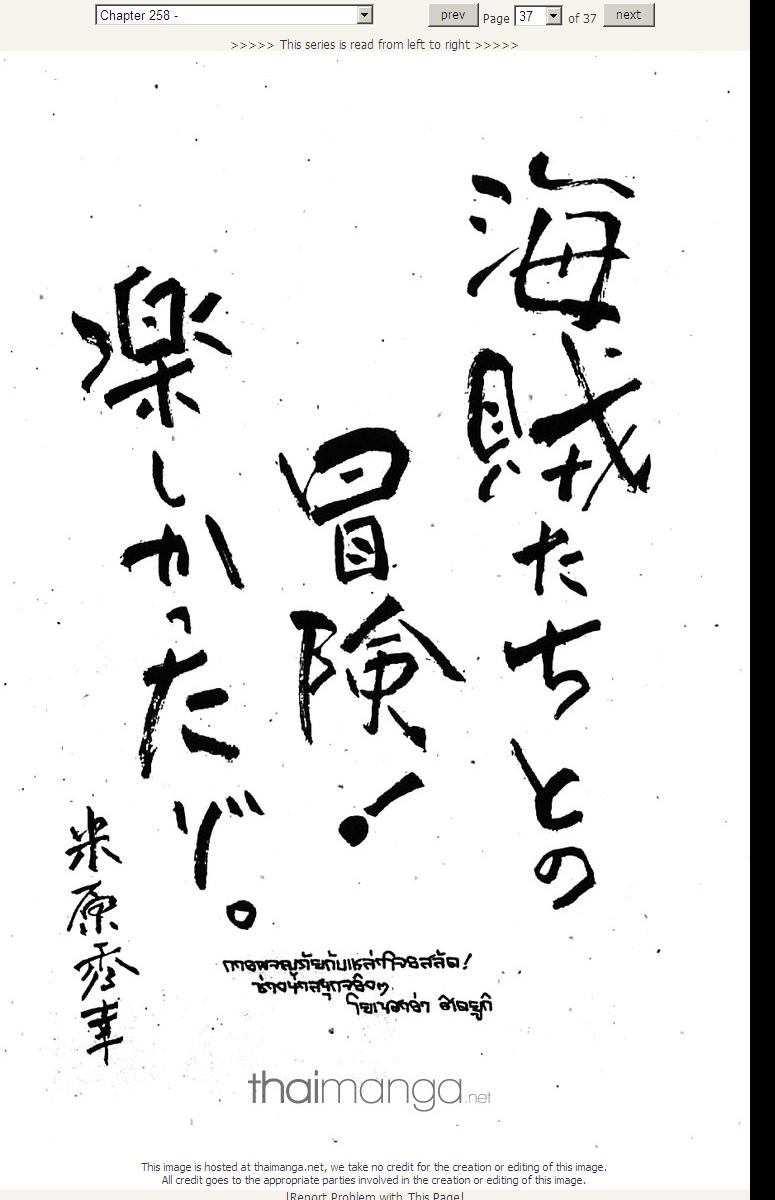 Chapter 258 -
prev
Page
37
of 37
next
>>>>> This series is read from left to right >>>>>
海賊たちとの
冒険!
楽しかったゾ。
米原秀幸
การผจญภัยกับเหล่าโจรสลัด!
ช่างน่าสนุกจริงๆ
โยเนฮาร่า ฮิเดยูกิ
thaimanga.net
This image is hosted at thaimanga.net, we take no credit for the creation or editing of this image.
All credit goes to the appropriate parties involved in the creation or editing of this image.
[Report Problem with This Page]